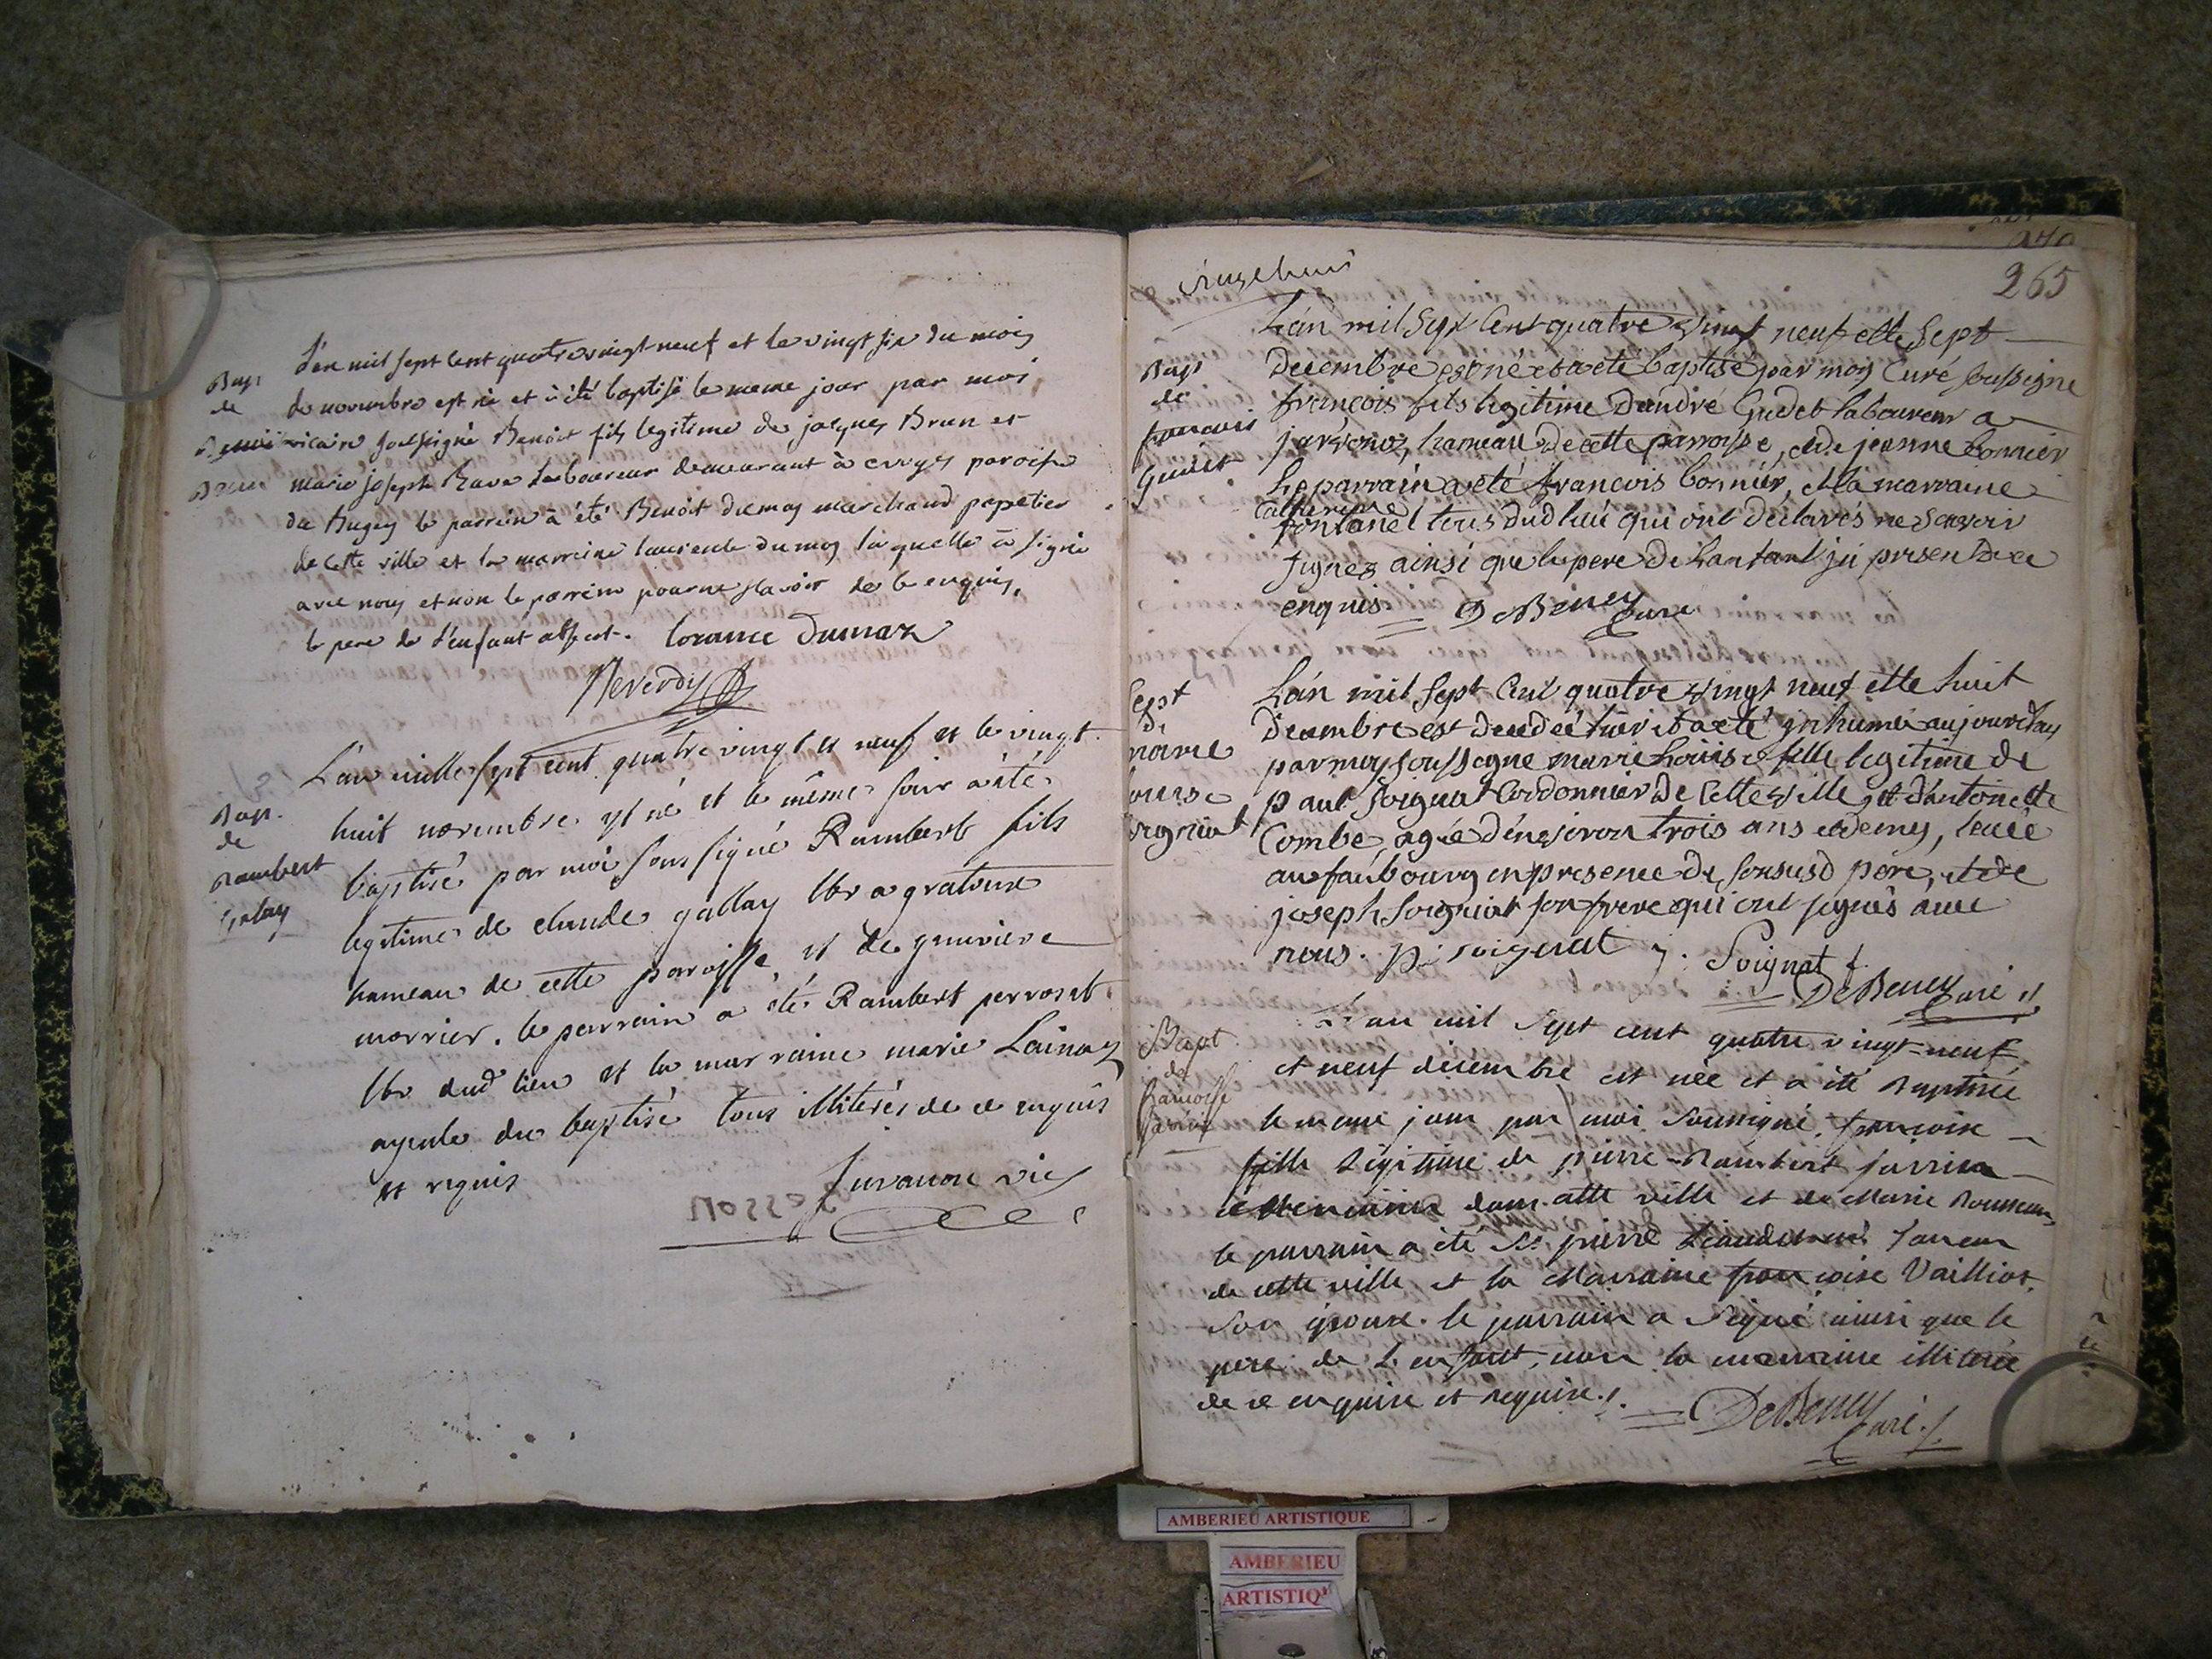 Bap
de
Benoit
Brun
L'an mil sept cent quatre vingt neuf et le vingt six du mois
de novembre est né et a été baptisé le meme jour par moi
vicaire soussigné Benoit fils legitime de jacques Brun et
marie joseph Rave laboureur demeurant à
du Bugey le parrein à été Benoit dumas marchand papetier
de cette ville et la marreine dumas laquelle à signé
avec nous et non le parrein pour ne sçavoir de ce enquis,
le pere de l'enfant absent. lorance Dumaz
Reverdy
Bap.
de
Rambert
Galay
L'an mille sept cent quatre vingt et neuf et le vingt
huit novembre est né et le même soir a été
baptisé par moi soussigné Rambert fils
legitime de claude gallay lbr a gratoux
hameau de cette paroisse, et de genevieve
morrier. le parrain a été Rambert perrozet
lbr dud lieu et la marraine marie Lainaz
ayeule du baptisé tous illiterés de ce enquis
et requis
Juvanon vic
265
Bap
de
francois
Gudet
L'an mil Sept Cent quatre vingt neuf et le Sept
Decembre est né et a eté baptisé par moy Curé soussigne
françois fils legitime D'andré Gudet laboureur a
hameau de cette parroisse, et de jeanne bonnier
Le parrain a eté francois bonnier, et la marraine
Catherine
fontanel tous dud lieu qui ont declarés ne scavoir
signer ainsi que le pere de Lanfant ji present de ce
enquis = DeBeney Curé
Sept
de
marie
louise
soignat
L'an mil Sept Cent quatre vingt neuf et le huit
Decembre est decedeé hier et a eté jnhumeé aujourdhuy
par moy soussigne marie Louise fille legitime de
paul Soignat Cordonnier de Cette ville, et d'antoinette
Combe, ageé d'environ trois ans et demy, leveé
au faubourg en presence de son susd pere, et de
joseph Soignat son frere qui ont signés avec
nous. p. soignat j. Soignat
= DeBeney Curé
Bapt
de
francoise
L'an mil Sept cent quatre vingt-neuf
et neuf décembre est née et a été Baptisée
le meme jour par moi soussigné, francoise
fille Légitime de pierre-Rambert
dans cette ville et de Marie
le parrain a été Sr. pierre Tanneur
de cette ville et la Marraine francoise Vailliot
son épouse. le parrain a Signé ainsi que le
pere de L'enfant, non la marraine illiterée
de ce enquise et requise. = DeBeney
Curé
AMBERIEU ARTISTIQUE
AMBERIEU
ARTISTIQ